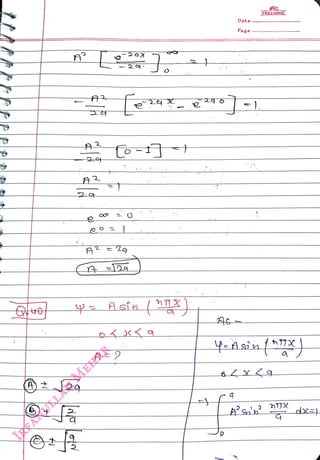 Date
Page
A² [ e^-2ax / -2a ]₀^∞ = 1
- A² / 2a [ e^-2a x - e^-2a0 ] = 1
A² / -2a [0-1] = 1
A² / 2a = 1
e^∞ = 0
e^0 = 1
A² = 2a
A = √2a
Q.40 ψ = A sin ( nπx / a )
0 < x < a
A = ?
(A) ± √2a
(B) ± √2/a
(C) ± √a/2
AC -
ψ = A sin ( nπx / a )
0 < x < a
⇒ ∫₀^a A² sin² nπx / a dx = 1
IRFANULLAH MEHAR